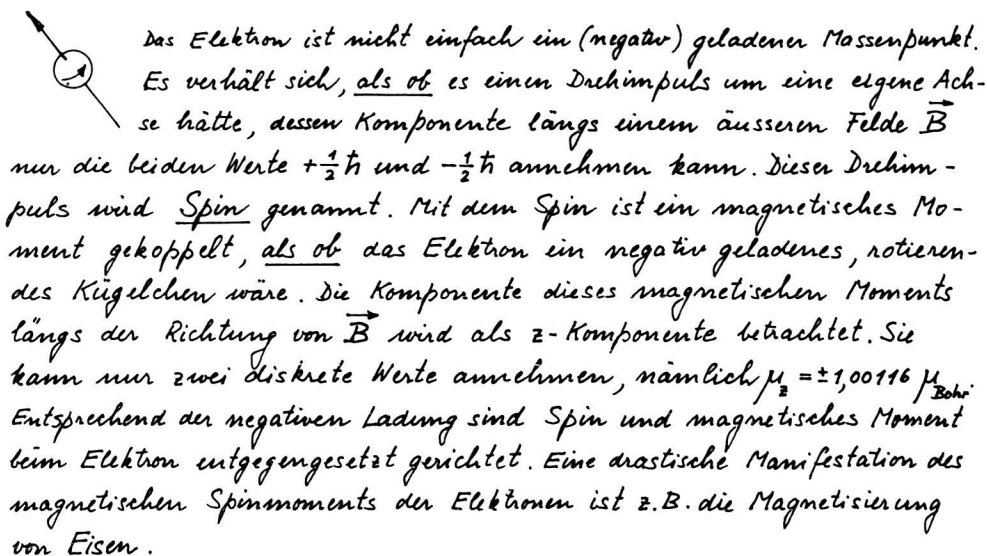 Das Elektron ist nicht einfach ein (negativ) geladener Massenpunkt.
Es verhält sich, als ob es einen Drehimpuls um eine eigene Ach-
se hätte, dessen Komponente längs einem äusseren Felde B⃗
nur die beiden Werte +½ħ und -½ħ annehmen kann. Dieser Drehim-
puls wird Spin genannt. Mit dem Spin ist ein magnetisches Mo-
ment gekoppelt, als ob das Elektron ein negativ geladenes, rotieren-
des Kügelchen wäre. Die Komponente dieses magnetischen Moments
längs der Richtung von B⃗ wird als z-Komponente betrachtet. Sie
kann nur zwei diskrete Werte annehmen, nämlich μ_z = ±1,00116 μ_Bohr.
Entsprechend der negativen Ladung sind Spin und magnetisches Moment
beim Elektron entgegengesetzt gerichtet. Eine drastische Manifestation des
magnetischen Spinmoments der Elektronen ist z.B. die Magnetisierung
von Eisen.